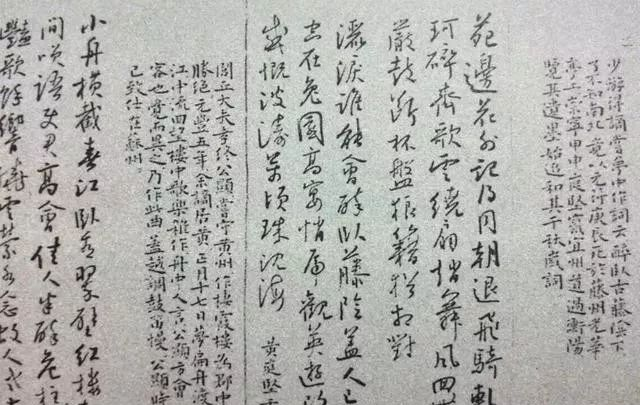 少游得謫嘗夢中作詞云醉臥古藤陰下
了不知南北竟以元符庚辰死於藤州光華
亭上崇寧甲申庭堅竄宜州道過衡陽
覽其遺墨始追和其千秋歲詞
苑邊花外記得同朝退飛騎軋
珂碎齊歌雲繞扇趙舞風回
嚴鼓斷杯盤狼籍猶相對
灑淚誰能會醉臥藤陰蓋人已
在兔園高宴悄虎觀英遊改
感慨波濤萬頃珠沈海 黃庭堅
閭丘大夫孝終公顯嘗守黃州作棲霞樓為郡中
勝絕元豐五年余謫居黃正月十七日夢扁舟渡
江中流回望樓中歌樂雜作舟中人言公顯方會
客也覺而異之乃作此曲蓋越調鼓笛慢公顯時
已致仕在蘇州
小舟橫截春江臥看翠壁紅樓
間笑語使君高會佳人半醉危柱
豔歌餘響繞雲縈水念故人老